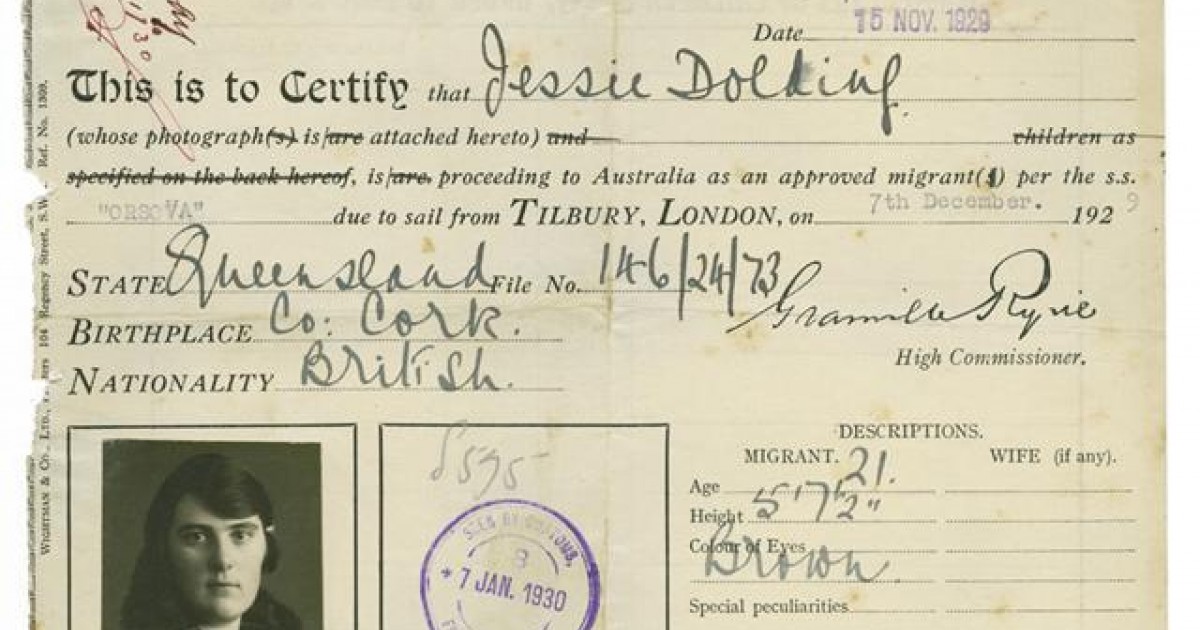 Date 15 NOV. 1929
This is to Certify that Jessie Dolding.
(whose photograph(s) is/are attached hereto) and children as
specified on the back hereof, is/are proceeding to Australia as an approved migrant(s) per the s.s.
"ORSOVA" due to sail from TILBURY, LONDON, on 7th December. 1929
STATE Queensland File No. 146/24/73
Granville Ryrie
High Commissioner.
BIRTHPLACE Co: Cork.
NATIONALITY British.
DESCRIPTIONS.
MIGRANT. WIFE (if any).
Age 21.
Height 5'7½"
Colour of Eyes Brown.
Special peculiarities
8595
SEEN BY CUSTOMS,
7 JAN. 1930
WIGHTMAN & Co., LTD., 104 Regency Street, S.W. Ref. No. 1309.